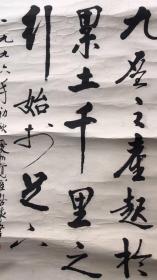 九层之台起於
累土千里之
行始於足下
一九九八年初秋